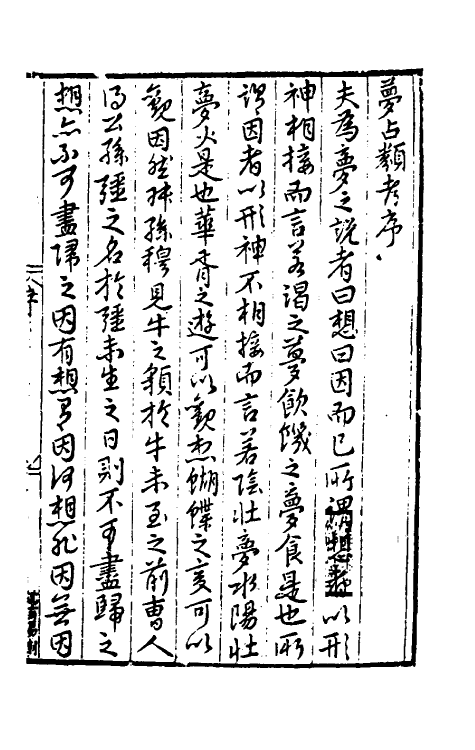 夢占類考序
夫為夢之說者曰想曰因而已所謂想者以形
神相接而言若渴之夢飲饑之夢食是也所
謂因者以形神不相接而言若陰壯夢水陽壯
夢火是也華胥之遊可以觀想蝴蝶之變可以
觀因然叔孫穆見牛之貌於牛未至之前曹人
得公孫彊之名於彊未生之日則不可盡歸之
想亦不可盡歸之因有想有因何想非因無因
序